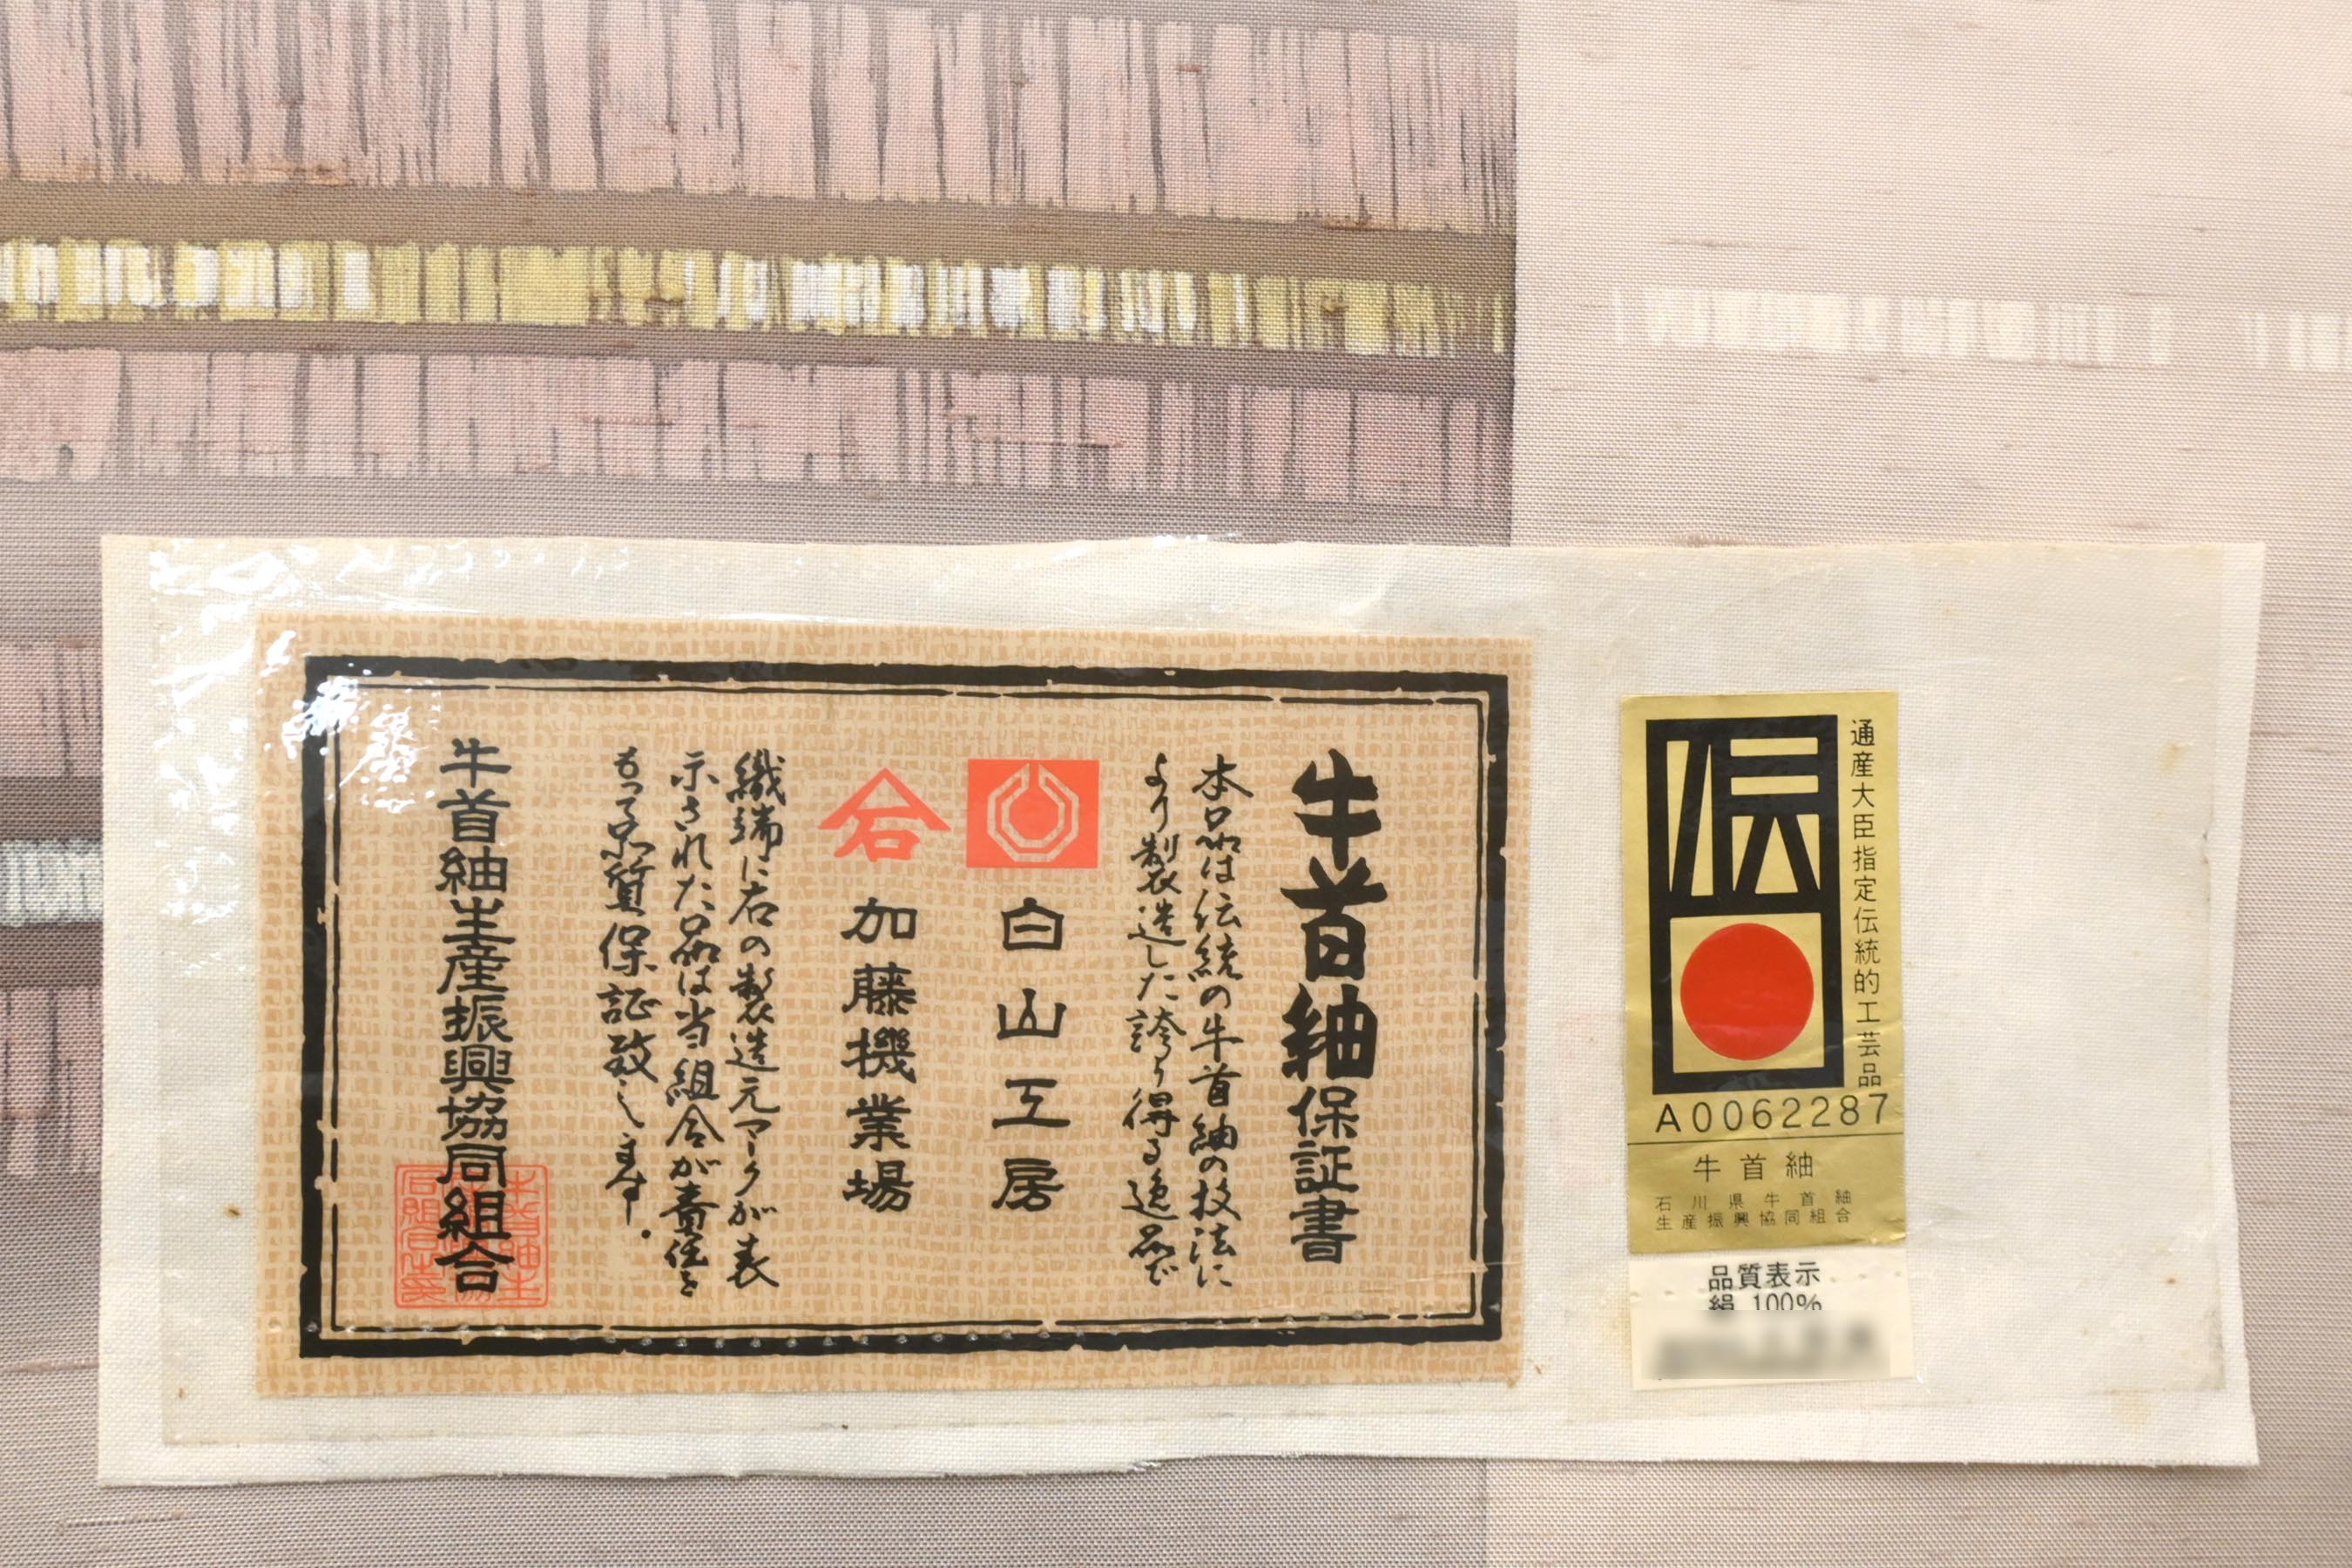 牛首紬保証書
本品は伝統の牛首紬の技法に
より製造した誇り得る逸品で
白山工房
石
加藤機業場
織端に右の製造元マークが表
示された品は当組合が責任を
もって品質保証致します.
牛首紬生産振興協同組合
伝
通産大臣指定伝統的工芸品
A0062287
牛首紬
石川県牛首紬
生産振興協同組合
品質表示
絹 100%